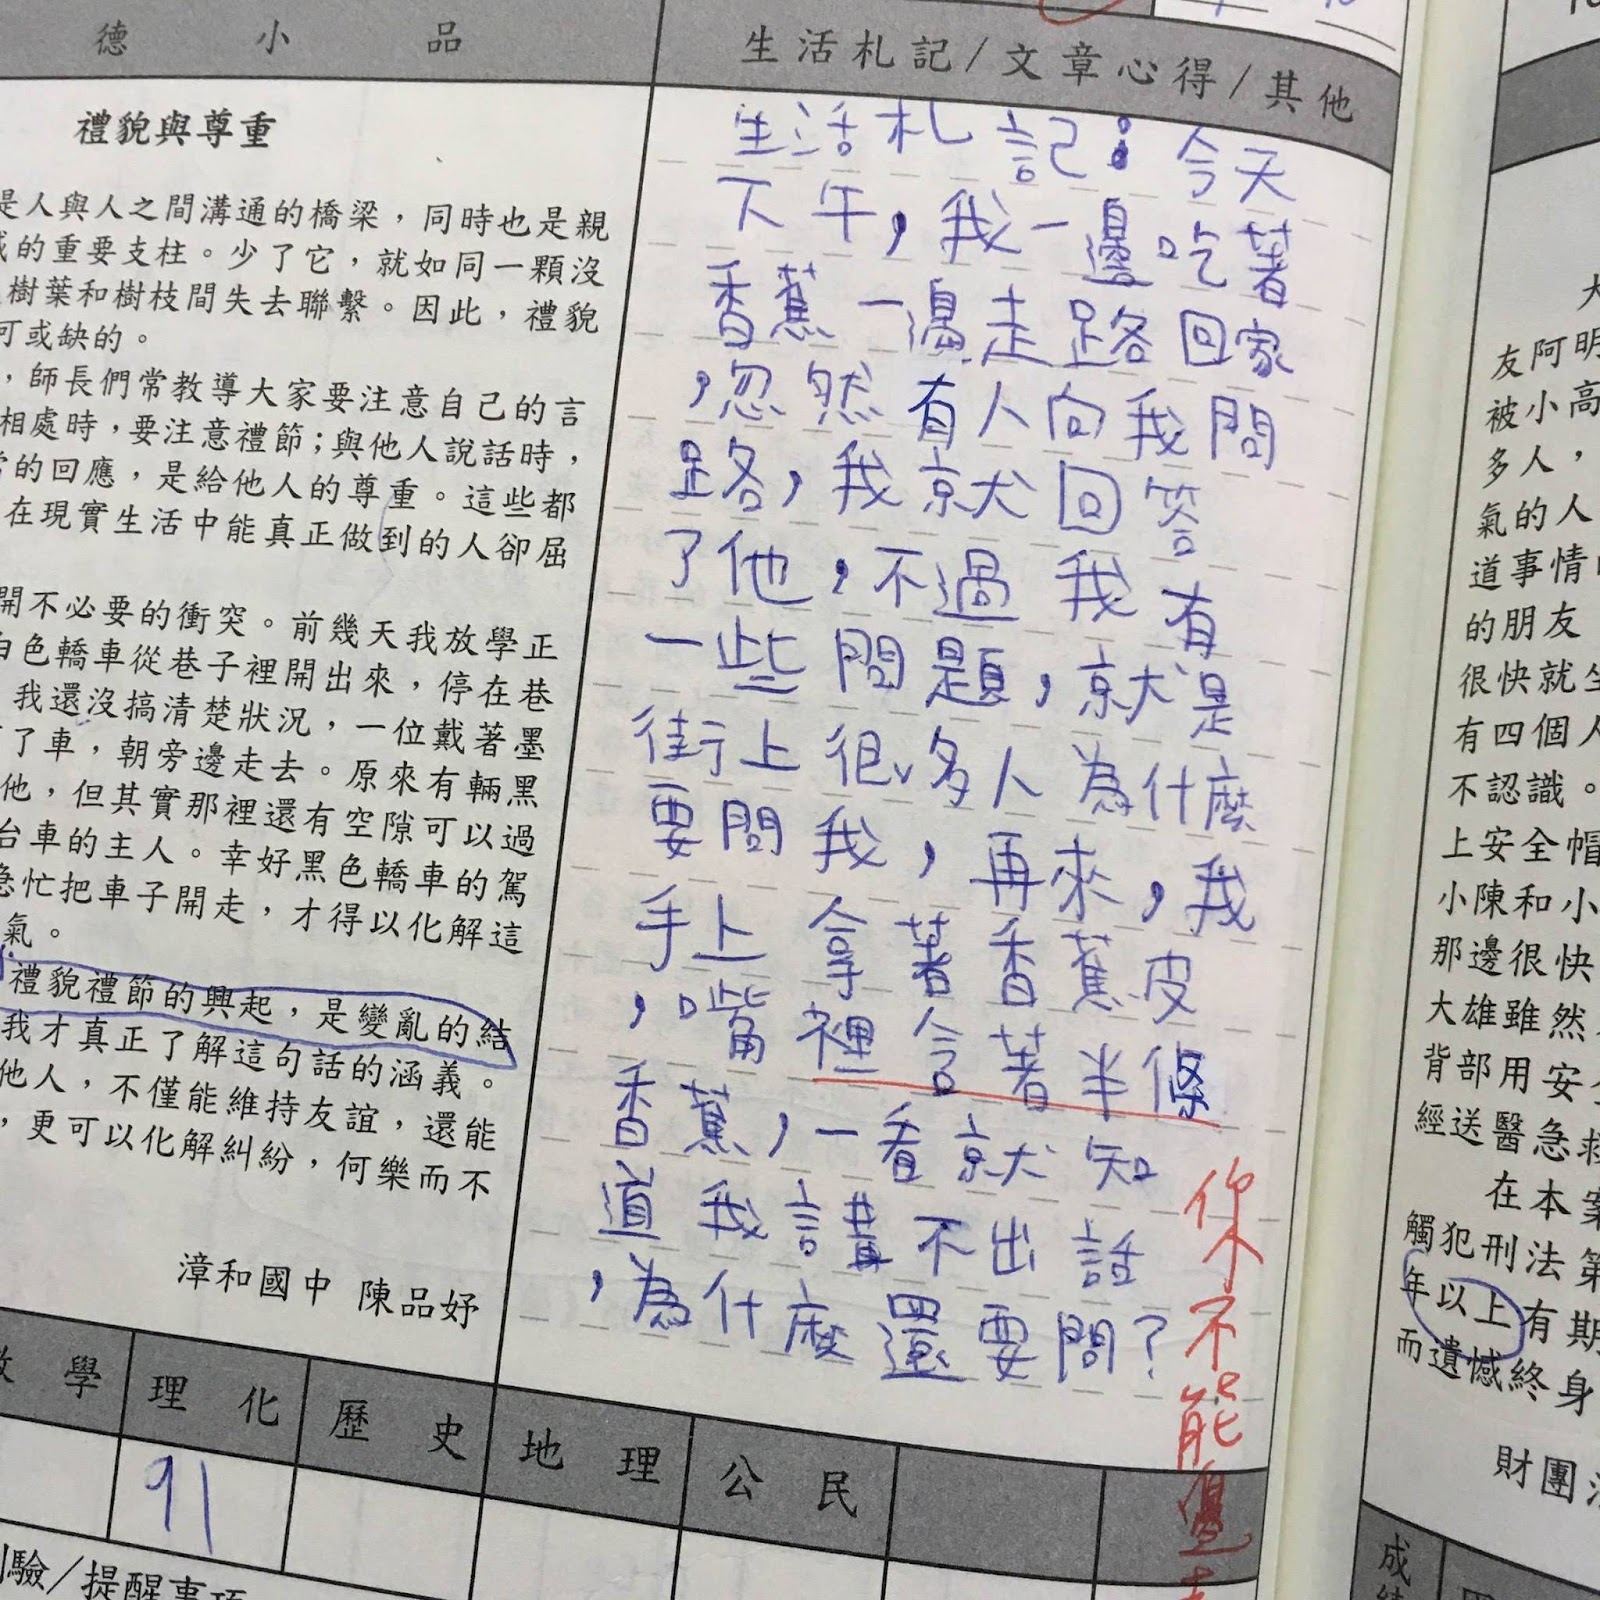 德小品
禮貌與尊重
是人與人之間溝通的橋梁，同時也是親
的重要支柱。少了它，就如同一顆沒
樹葉和樹枝間失去聯繫。因此，禮貌
可或缺的。
，師長們常教導大家要注意自己的言
相處時，要注意禮節；與他人說話時，
的回應，是給他人的尊重。這些都
在現實生活中能真正做到的人卻屈
開不必要的衝突。前幾天我放學正
白色轎車從巷子裡開出來，停在巷
我還沒搞清楚狀況，一位戴著墨
了車，朝旁邊走去。原來有輛黑
他，但其實那裡還有空隙可以過
台車的主人。幸好黑色轎車的駕
急忙把車子開走，才得以化解這
氣。
禮貌禮節的興起，是變亂的結
我才真正了解這句話的涵義。
他人，不僅能維持友誼，還能
，更可以化解糾紛，何樂而不
漳和國中 陳品妤
生活札記/文章心得/其他
生活札記：今天
下午，我一邊吃著
香蕉一邊走路回家
，忽然有人向我問
路，我就回答
了他，不過我有
一些問題，就是
街上很多人為什麼
要問我，再來，我
手上拿著香蕉皮
，嘴裡含著半條
香蕉，一看就知
道我講不出話
，為什麼還要問？
你不能邊
學 理化 歷史 地理 公民
91
驗/提醒事項
大
友阿明
被小高
多人，
氣的人
道事情
的朋友
很快就坐
有四個人
不認識。
上安全帽
小陳和小
那邊很快
大雄雖然
背部用安全
經送醫急救
在本案
觸犯刑法第
年以上有期
而遺憾終身
財團法
成